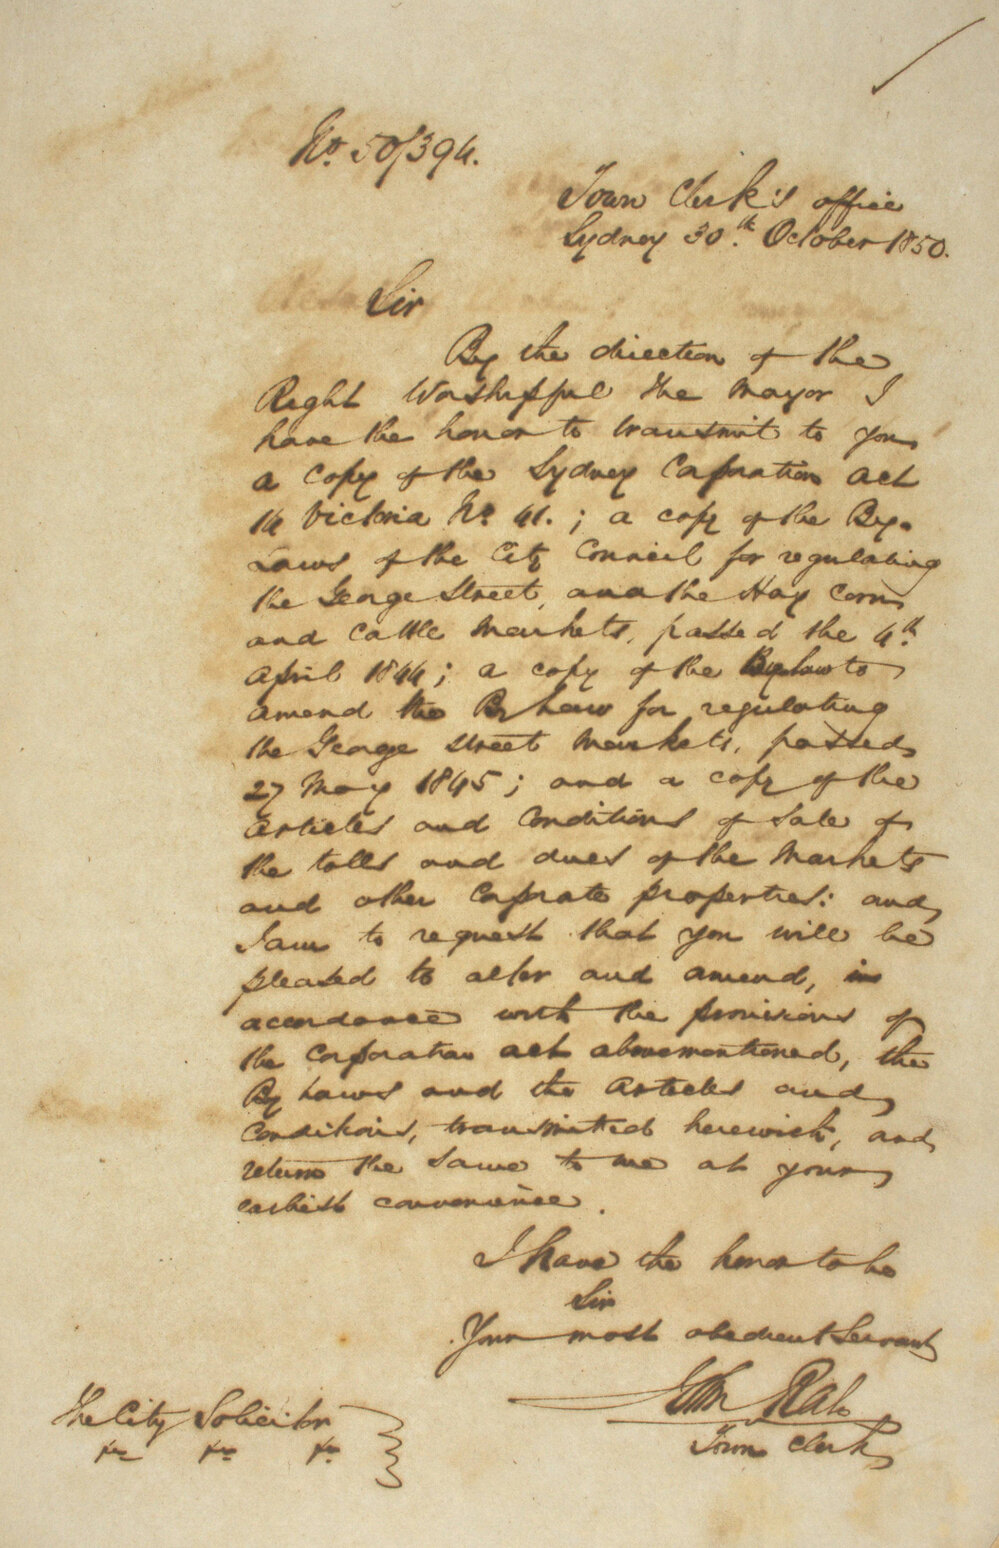 No. 50/394.
Town Clerk's office
Sydney 30th. October 1850.
Sir
By the direction of the
Right Worshipful the Mayor I
have the honor to transmit to you
a copy of the Sydney Corporation Act
14 Victoria No. 41. ; a copy of the By-
Laws of the City Council for regulating
the George Street, and the Hay Corn
and Cattle Markets, passed the 4th.
April 1844 ; a copy of the By law to
amend the By Law for regulating
the George Street Markets, passed
27 May 1845 ; and a copy of the
Articles and Conditions of Sale of
the tolls and dues of the Markets
and other Corporate properties: and
I am to request that you will be
pleased to alter and amend, in
accordance with the provisions of
the Corporation Act abovementioned, the
By Laws and the Articles and
Conditions, transmitted herewith, and
return the same to me at your
earliest convenience.
I have the honor to be
Sir
Your most obedient Servant
Town Clerk
The City Solicitor